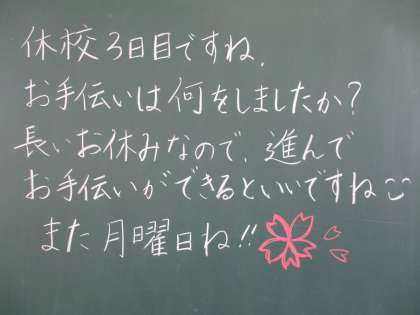 休校3日目ですね.
お手伝いは何をしましたか?
長いお休みなので、進んで
お手伝いができるといいですね
また月曜日ね!!